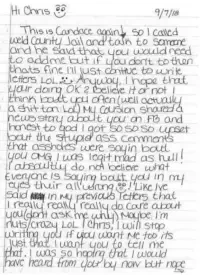 Hi Chris 9/7/18
This is Candace again, So I called
weld county Jail and talk to someone
and he said that you would need
to add me but if you dont to then
thats fine I'll just contiue to write
letters LOL Anyway, I hope that
your doing OK? Believe it or not I
think bout you often (well actually
a shit ton) LOL My cousin shared a
news story about you on FB and
honest to God I got SO SO SO upset
bout the stupid ass comments
that assholes were sayin bout
you OMG I was legit mad as hull!
I absoulty do not believe what
Everyone is saying bout you in my
eyes their all wrong! Like Ive
said in my previous letters that
I really really really do care about
you (dont ask me why) Maybe I'm
nuts/crazy LOL! Chris, I will stop
writing you if you want me too its
Just that I want you to tell me
that. I was so hoping that I would
have heard from you by now but nope